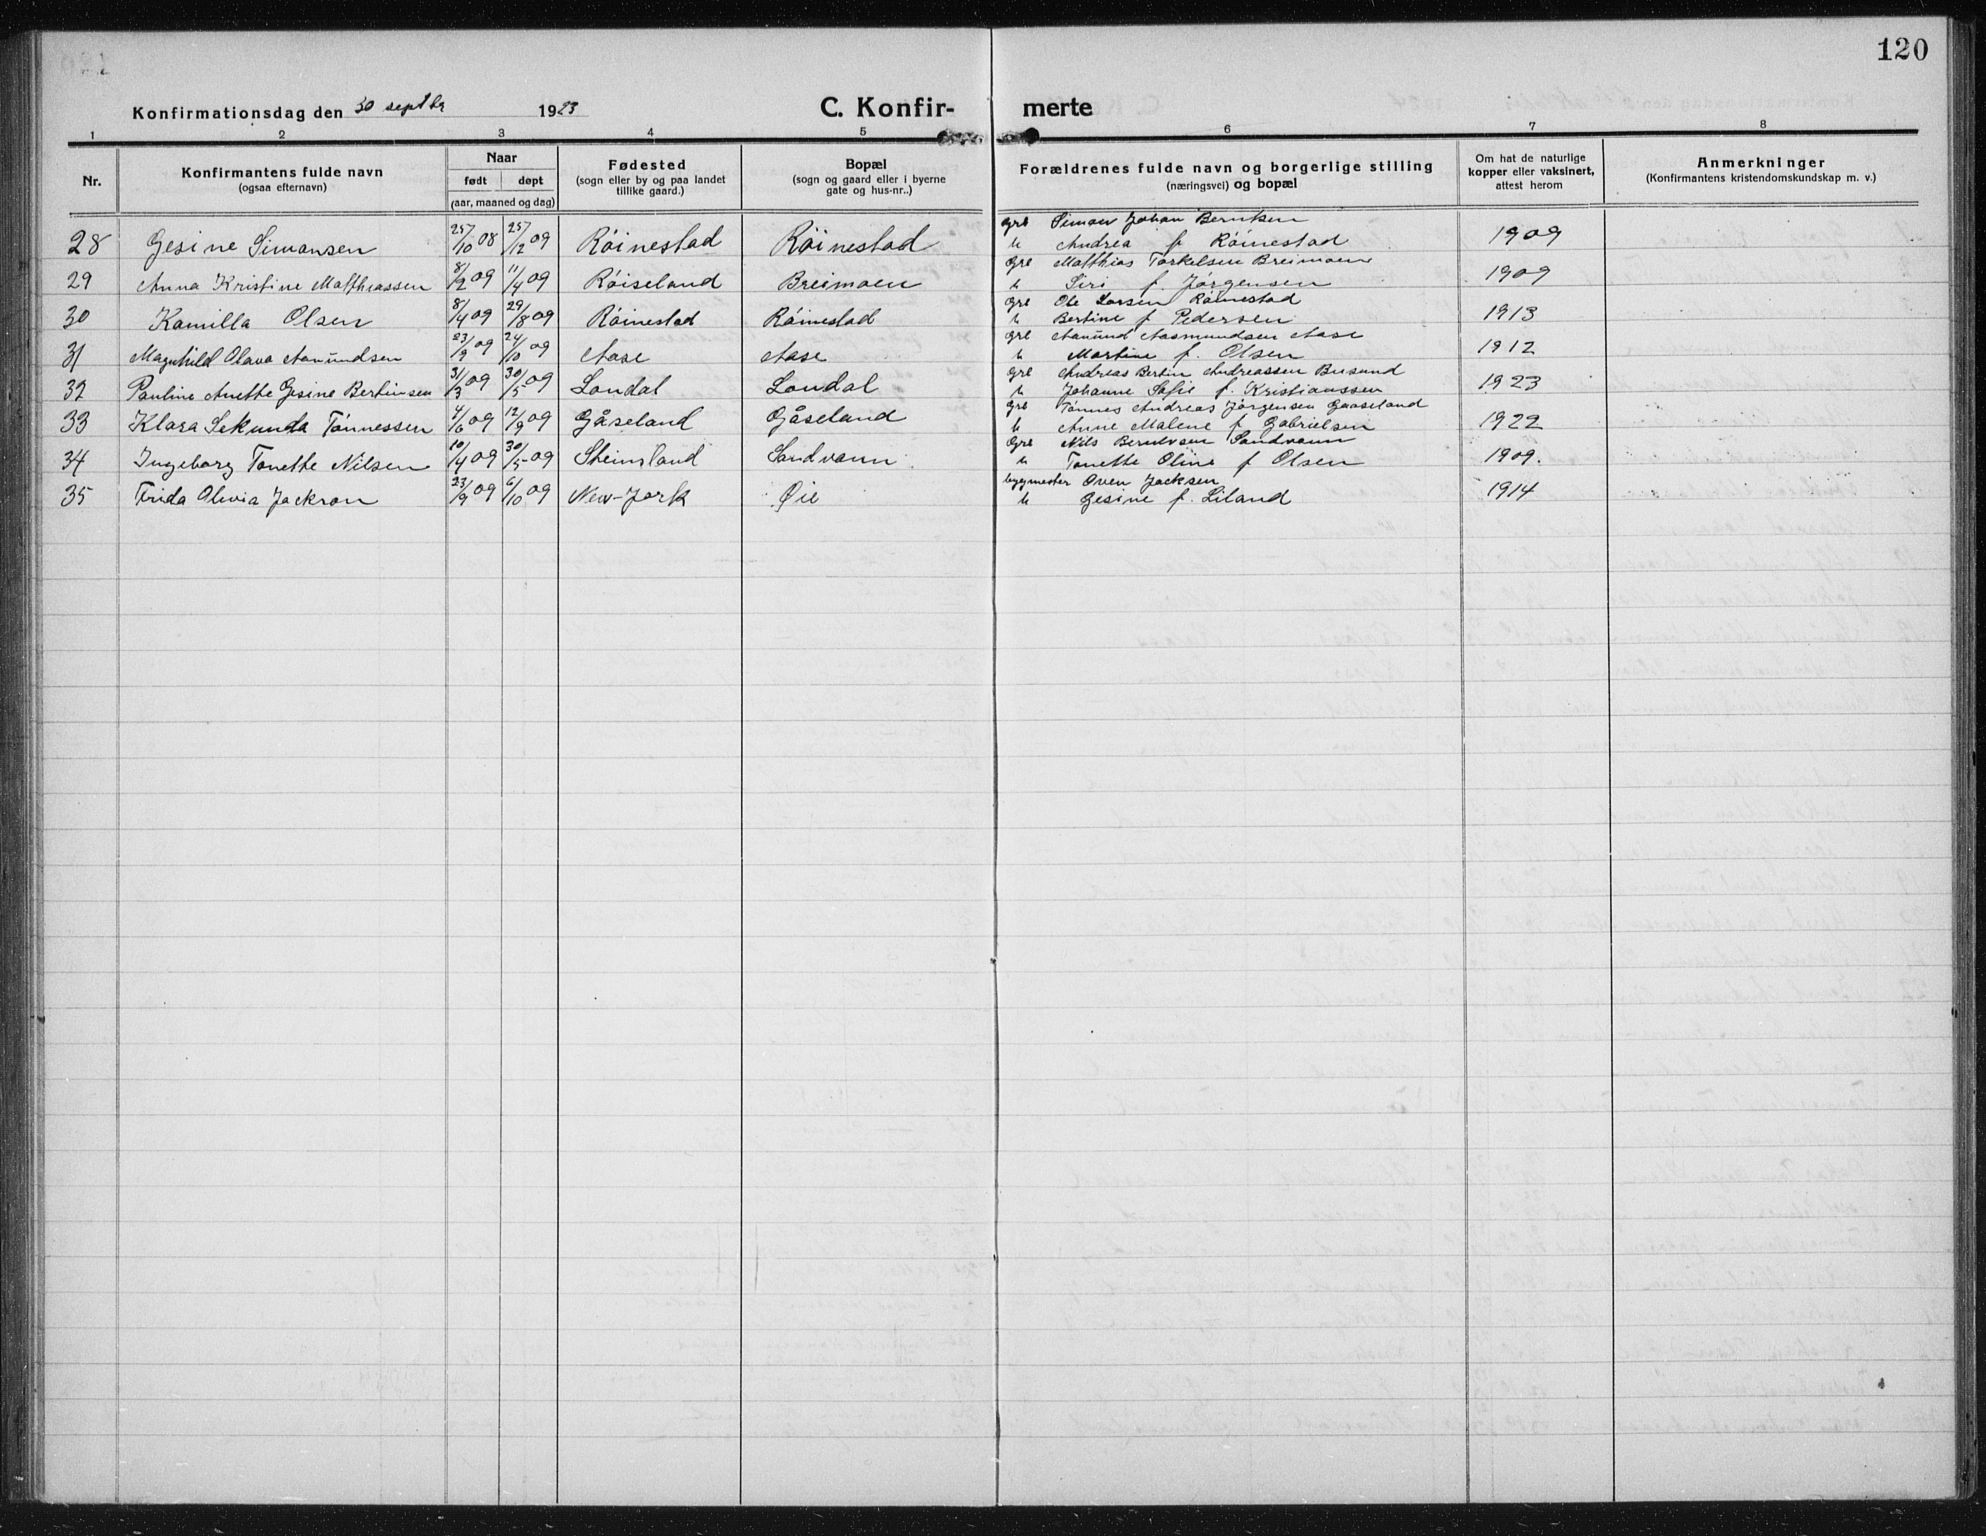 120
Konfirmationsdag den 30 septbr 1923 C. Konfir- merte
1 2 3 4 5 6 7 8
Nr. Konfirmantens fulde navn (ogsaa efternavn) Naar født døpt (aar, maaned og dag) Fødested (sogn eller by og paa landet tillike gaard.) Bopæl (sogn og gaard eller i byerne gate og hus-nr..) Forældrenes fulde navn og borgerlige stilling (næringsvei) og bopæl Om hat de naturlige kopper eller vaksinert, attest herom Anmerkninger (Konfirmantens kristendomskundskap m. v.)
28 Gesine Simonsen 25/10 08 25/12 09 Røinestad Røinestad grb Simon Johan Berntsen
h Andrea f Røinestad 1909
29 Anna Kristine Matthiassen 8/2 09 11/4 09 Røiseland Breimoen grb Matthias Torkelsen Breimoen
h Siri f. Jørgensen 1909
30 Kamilla Olsen 8/4 09 29/8 09 Røinestad Røinestad grb Ole Larsen Røinestad
h Bertine f Pedersen 1913
31 Magnhild Olava Aanundsen 23/9 09 24/10 09 Aase Aase grb Aanund Aasmundsen Aase
h Martine f. Olsen 1912
32 Pauline Anette Gesine Bertinsen 31/3 09 30/5 09 Londal Londal grb Andreas Bertin Andreassen
h Johanne Sofie f. Kristianssen 1923
33 Klara Sekunda Tønnessen 4/6 09 12/9 09 Gåseland Gåseland grb Tønnes Andreas Jørgensen Gaaseland
h Anne Malene f Gabrielsen 1922
34 Ingeborg Tonette Nilsen 10/4 09 30/5 09 Steinsland Sandvann grb Nils Berntsen Sandvann
h Tonette Oline f Olsen 1909.
35 Frida Olivia Jackson 23/9 09 6/10 09 New-Jork Øie bygmester Oven Jacksen
h Gesine f. Liland 1914